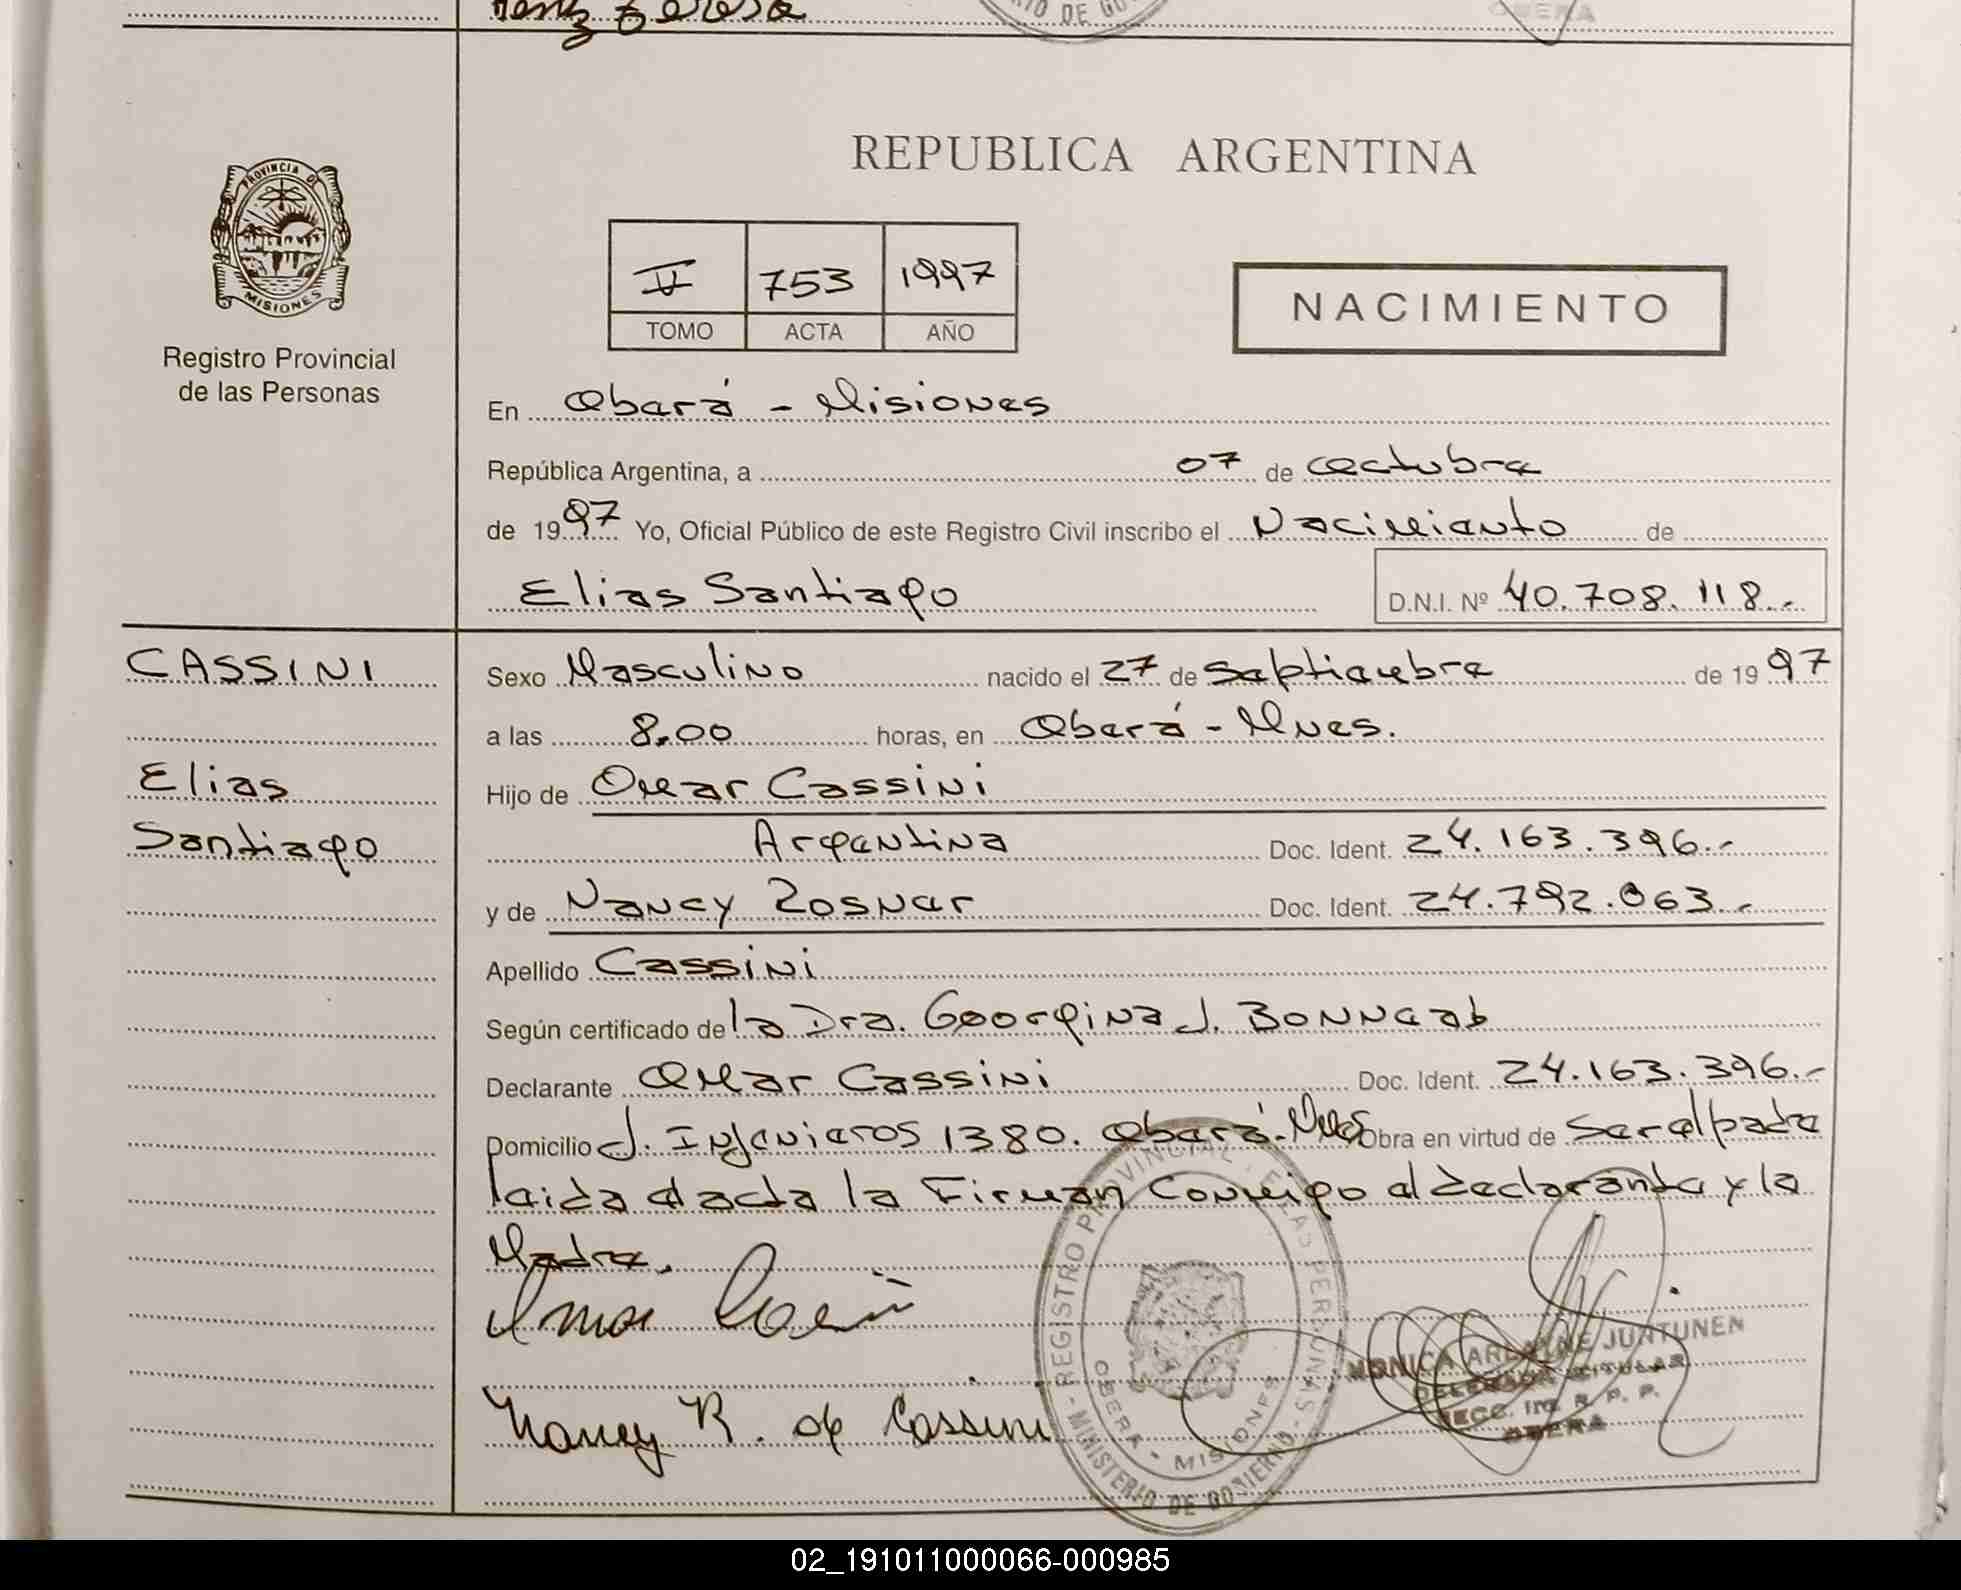 PROVINCIA DE
MISIONES
Registro Provincial
de las Personas
REPUBLICA ARGENTINA
II 753 1997
TOMO ACTA AÑO
NACIMIENTO
En Oberá - Misiones
República Argentina, a 07 de octubre
de 1997 Yo, Oficial Público de este Registro Civil inscribo el Nacimiento de
Elias Santiago D.N.I. Nº 40.708.118.-
CASSINI
Elias
Santiago
Sexo Masculino nacido el 27 de Septiembre de 1997
a las 8,00 horas, en Oberá - Mnes.
Hijo de Omar Cassini
Argentina Doc. Ident. 24.163.396.-
y de Nancy Rosner Doc. Ident. 24.792.063.-
Apellido Cassini
Según certificado de la Dra. Georgina J. Bonneab
Declarante Omar Cassini Doc. Ident. 24.163.396.-
Domicilio J. Ingenieros 1380. Oberá - Mnes Obra en virtud de Ser el padre
leida el acta la Firman Conmigo el declarante y la
Madre.
Nancy R. de Cassini
REGISTRO PROVINCIAL DE LAS PERSONAS - MINISTERIO DE GOBIERNO
OBERA - MISIONES
MONICA JUNTUNEN
TITULAR
R. P. P.
OBERA
02_191011000066-000985